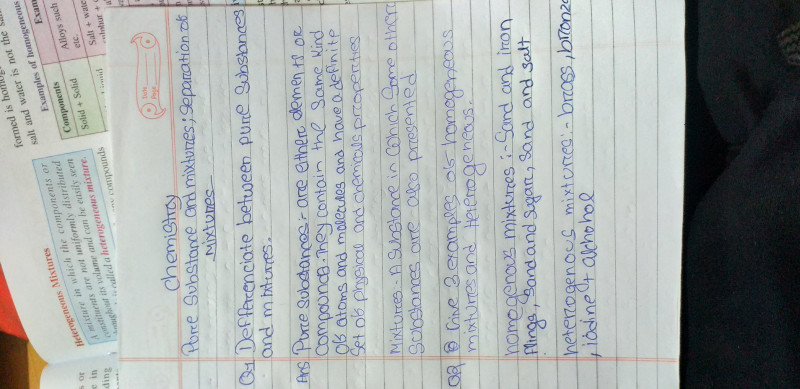 formed is homog
salt and water is not the sa
Examples of homogeneous
Components
Exam
Solid + Solid
Alloys such
etc.
Salt + wate
Heterogeneous Mixtures
A mixture in which the components or
constituents are not uniformly distributed
throughout its volume and can be easily seen
is called a heterogeneous mixture.
compounds
Date
Page
Chemistry
Pure Substance and mixtures; Separation of
Mixtures
Q1 Defferenciate between pure Substances
and mixtures.
Ans Pure substances:- are either elements or
Compounds. They contain the same kind
of atoms and molecules and have a definite
Set of physical and chemicals properties
Mixtures - A Substance in which Some other
Substances are also presented
Q2 Give 3 examples of homogeneous
mixtures and heterogeneous.
homogenous mixtures :- Sand and iron
flings, Sand and Sugar, Sand and salt
heterogenous mixtures:- brass, bronze
, iodine & alchohol